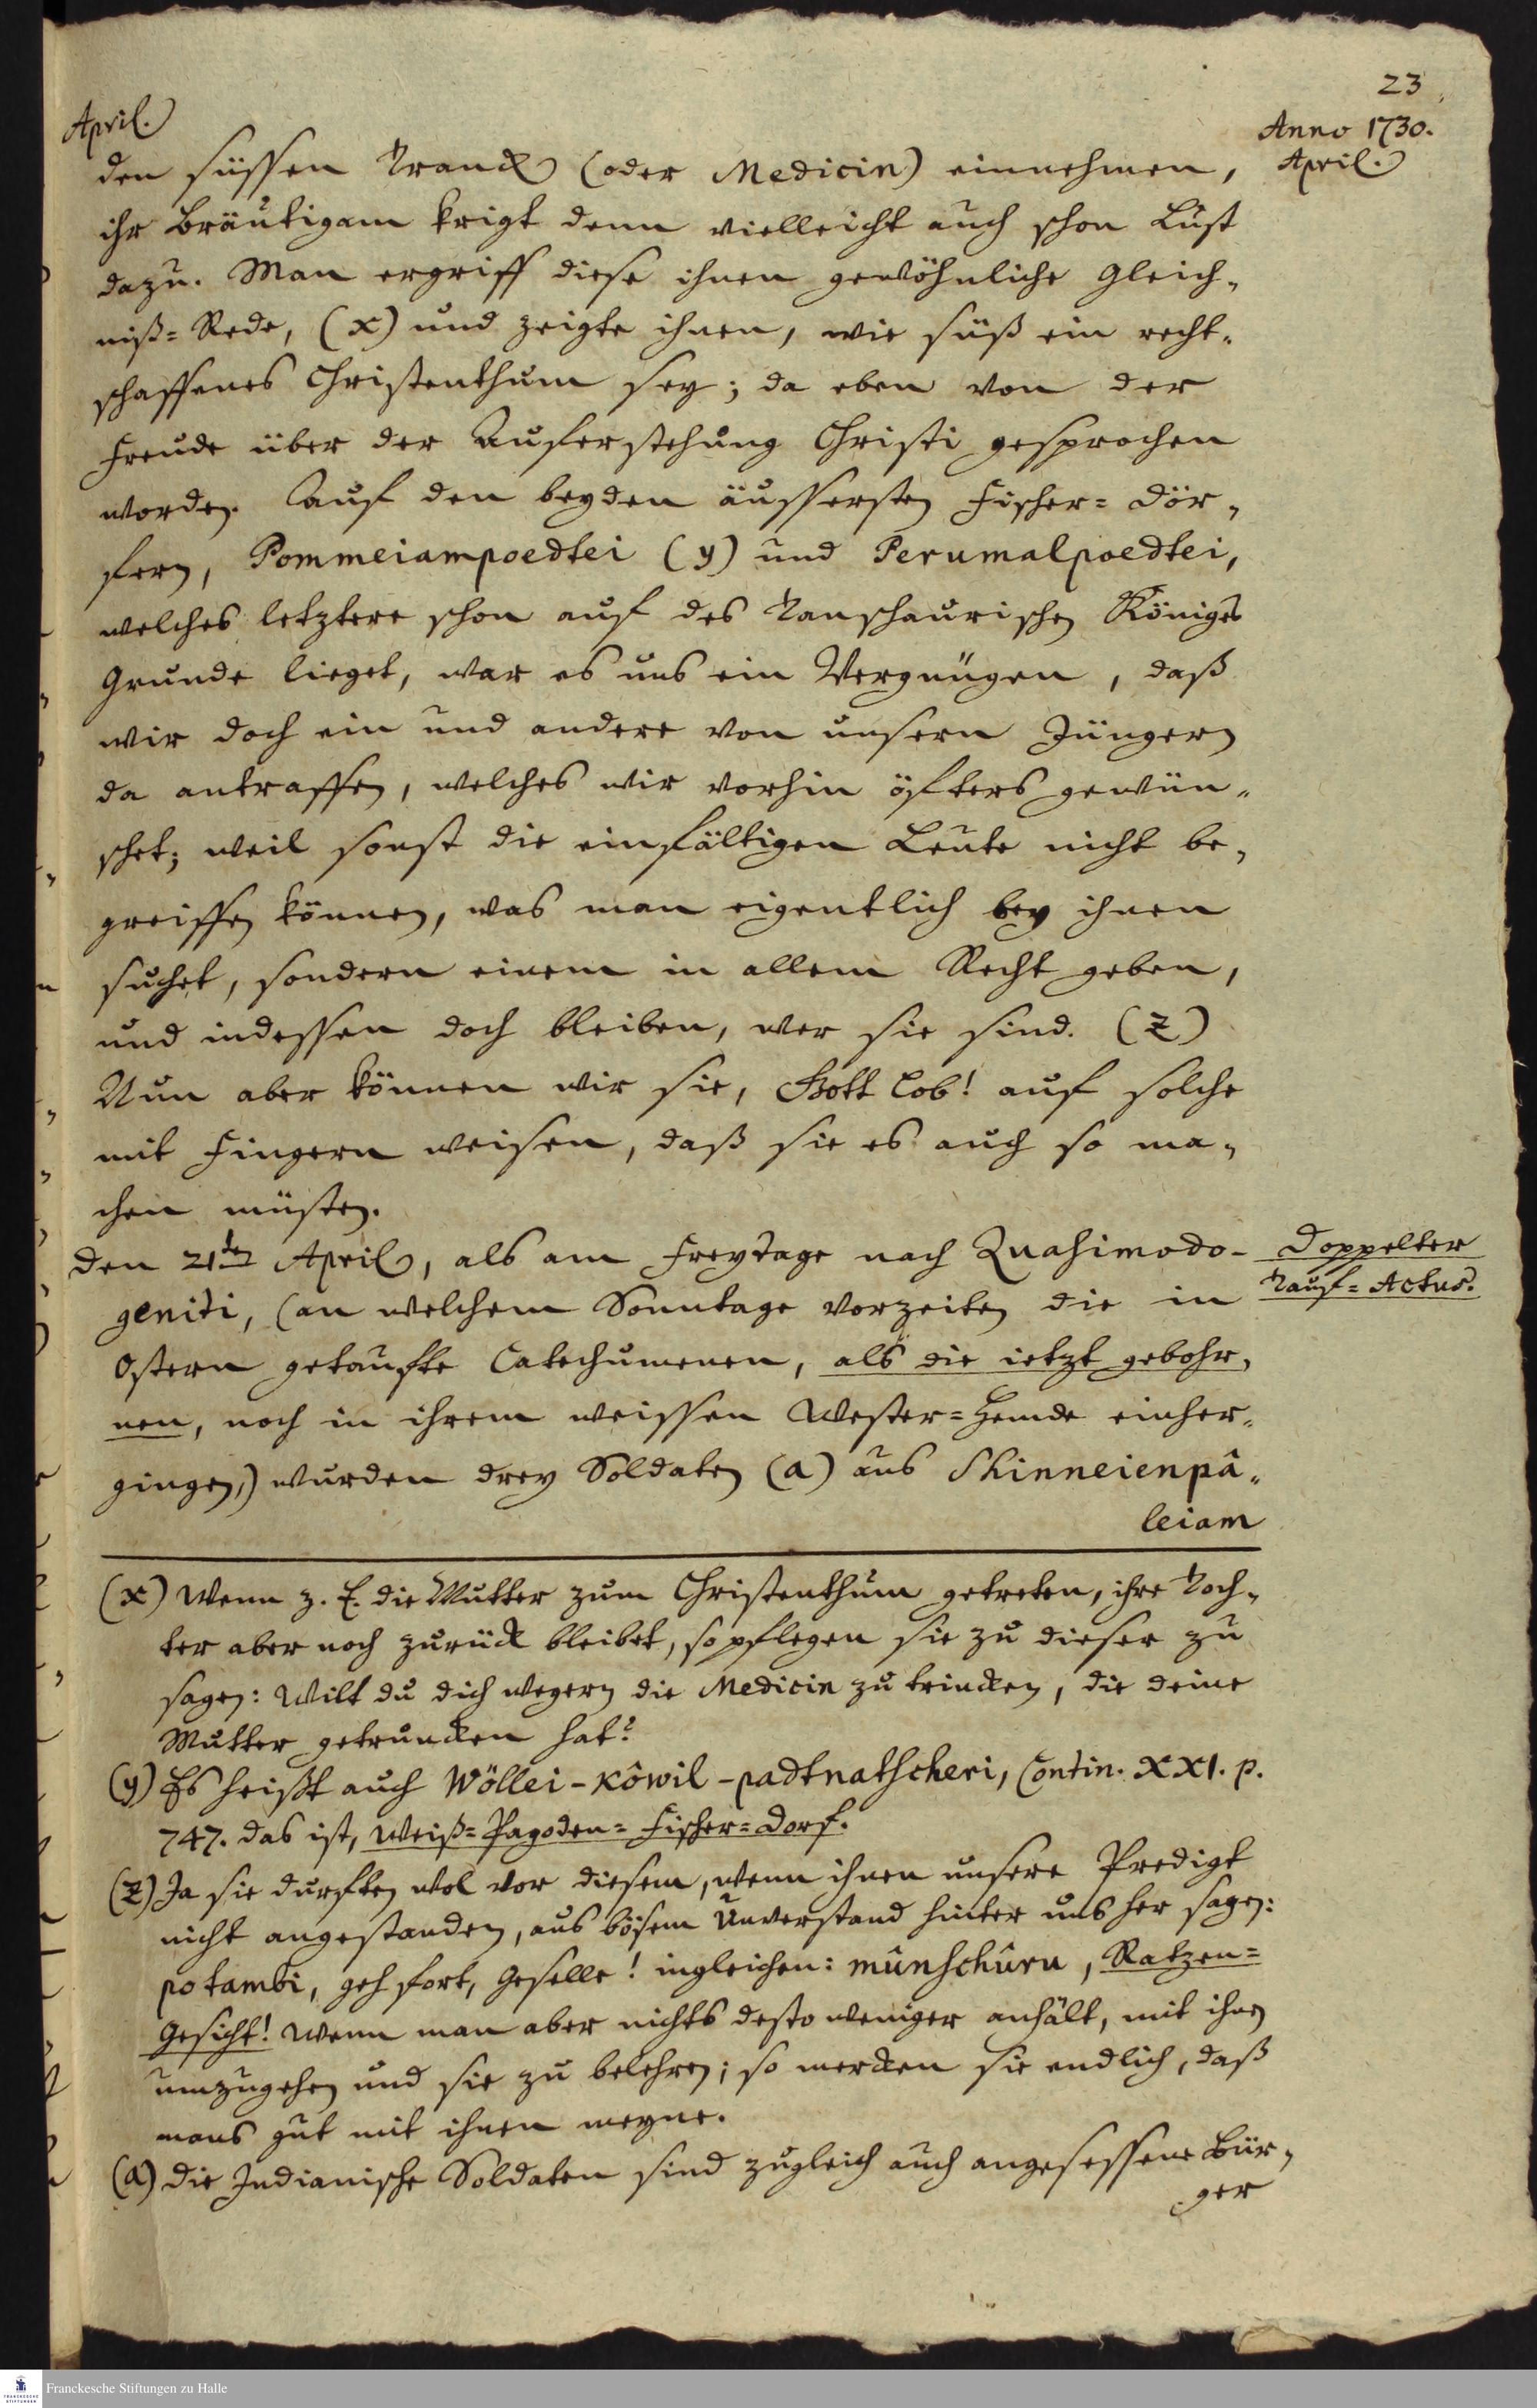 23
April.
Anno 1730.
April.
den süssen Tranck (oder Medicin) einnehmen,
ihr Bräutigam krigt denn vielleicht auch schon Lust
dazu. Man ergriff diese ihnen gewöhnliche Gleich-
niß-Rede, (x) und zeigte ihnen, wie süß ein recht-
schaffenes Christenthum sey; da eben von der
Freude über der Auferstehung Christi gesprochen
worden. Auf den beyden äussersten Fischer-Dör-
fern, Pommeiampoedtei (y) und Perumalpoedtei,
welches letztere schon auf des Tanschaurischen Königes
Grunde lieget, war es uns ein Vergnügen, daß
wir doch ein und andere von unsern Jüngern
da antraffen, welches wir vorhin öfters gewün-
schet; weil sonst die einfältigen Leute nicht be-
greiffen können, was man eigentlich bey ihnen
suchet, sondern einem in allem Recht geben,
und indessen doch bleiben, wer sie sind. (z)
Nun aber können wir sie, Gott Lob! auf solche
mit Fingern weisen, daß sie es auch so ma-
chen müsten.
Den 21ten April, als am Freytage nach Quasimodo-
geniti, (an welchem Sonntage vorzeiten die in
Ostern getaufte Catechumenen, als die ietzt gebohr-
nen, noch in ihrem weissen Wester-Hemde einher-
gingen,) wurden drey Soldaten (a) aus Shinneienpâ-
leiam
Doppelter
Tauf-Actus.
(x) Wenn z. E. die Mutter zum Christenthum getreten, ihre Toch-
ter aber noch zurück bleibet, so pflegen sie zu dieser zu
sagen: Wilt du dich wegern die Medicin zu trincken, die deine
Mutter getruncken hat?
(y) Es heißt auch Wöllei-kôwil-padtnatscheri, Contin. XXI. p.
747. das ist, Weiß-Pagoden-Fischer-Dorf.
(z) Ja sie durften wol vor diesem, wenn ihnen unsere Predigt
nicht angestanden, aus bösem Unverstand hinter uns her sagen:
po tambi, geh fort, Geselle! ingleichen: mûnschûru, Ratzen-
Gesicht! Wenn man aber nichts desto weniger anhält, mit ihnen
umzugehen und sie zu belehren; so mercken sie endlich, daß
mans gut mit ihnen meyne.
(a) Die Indianische Soldaten sind zugleich auch angesessene Bür-
ger
Franckesche Stiftungen zu Halle